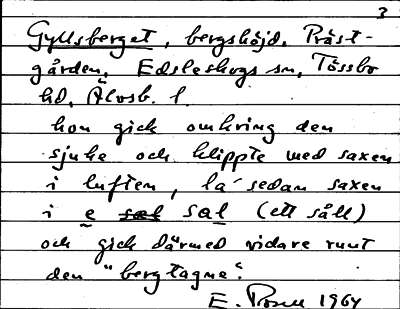 3
Gyllsberget, bergshöjd. Präst-
gården, Edsleskogs sn, Tössbo
hd, Älvsb. l.
hon gick omkring den
sjuke och klippte med saxen
i luften, la' sedan saxen
i e sal sal (ett såll)
och gick därmed vidare runt
den "bergtagne".
E. 1964